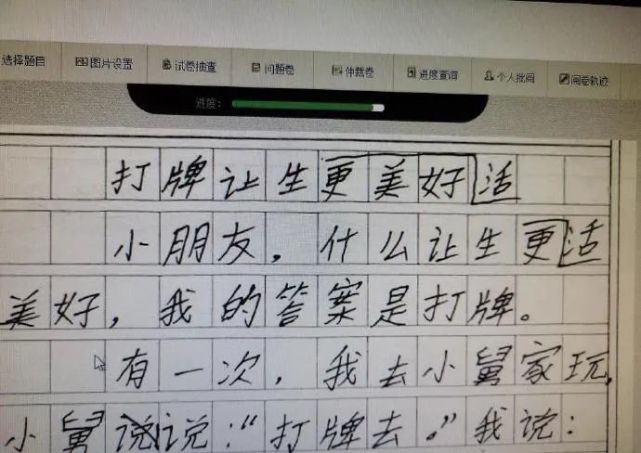 选择题目 图片设置 试卷抽查 问题卷 仲裁卷 进度查询 个人批阅 阅卷轨迹
进度：
打牌让生更美好活
小朋友，什么让生更活
美好，我的答案是打牌。
有一次，我去小舅家玩，
小舅说说：“打牌去。”我说：